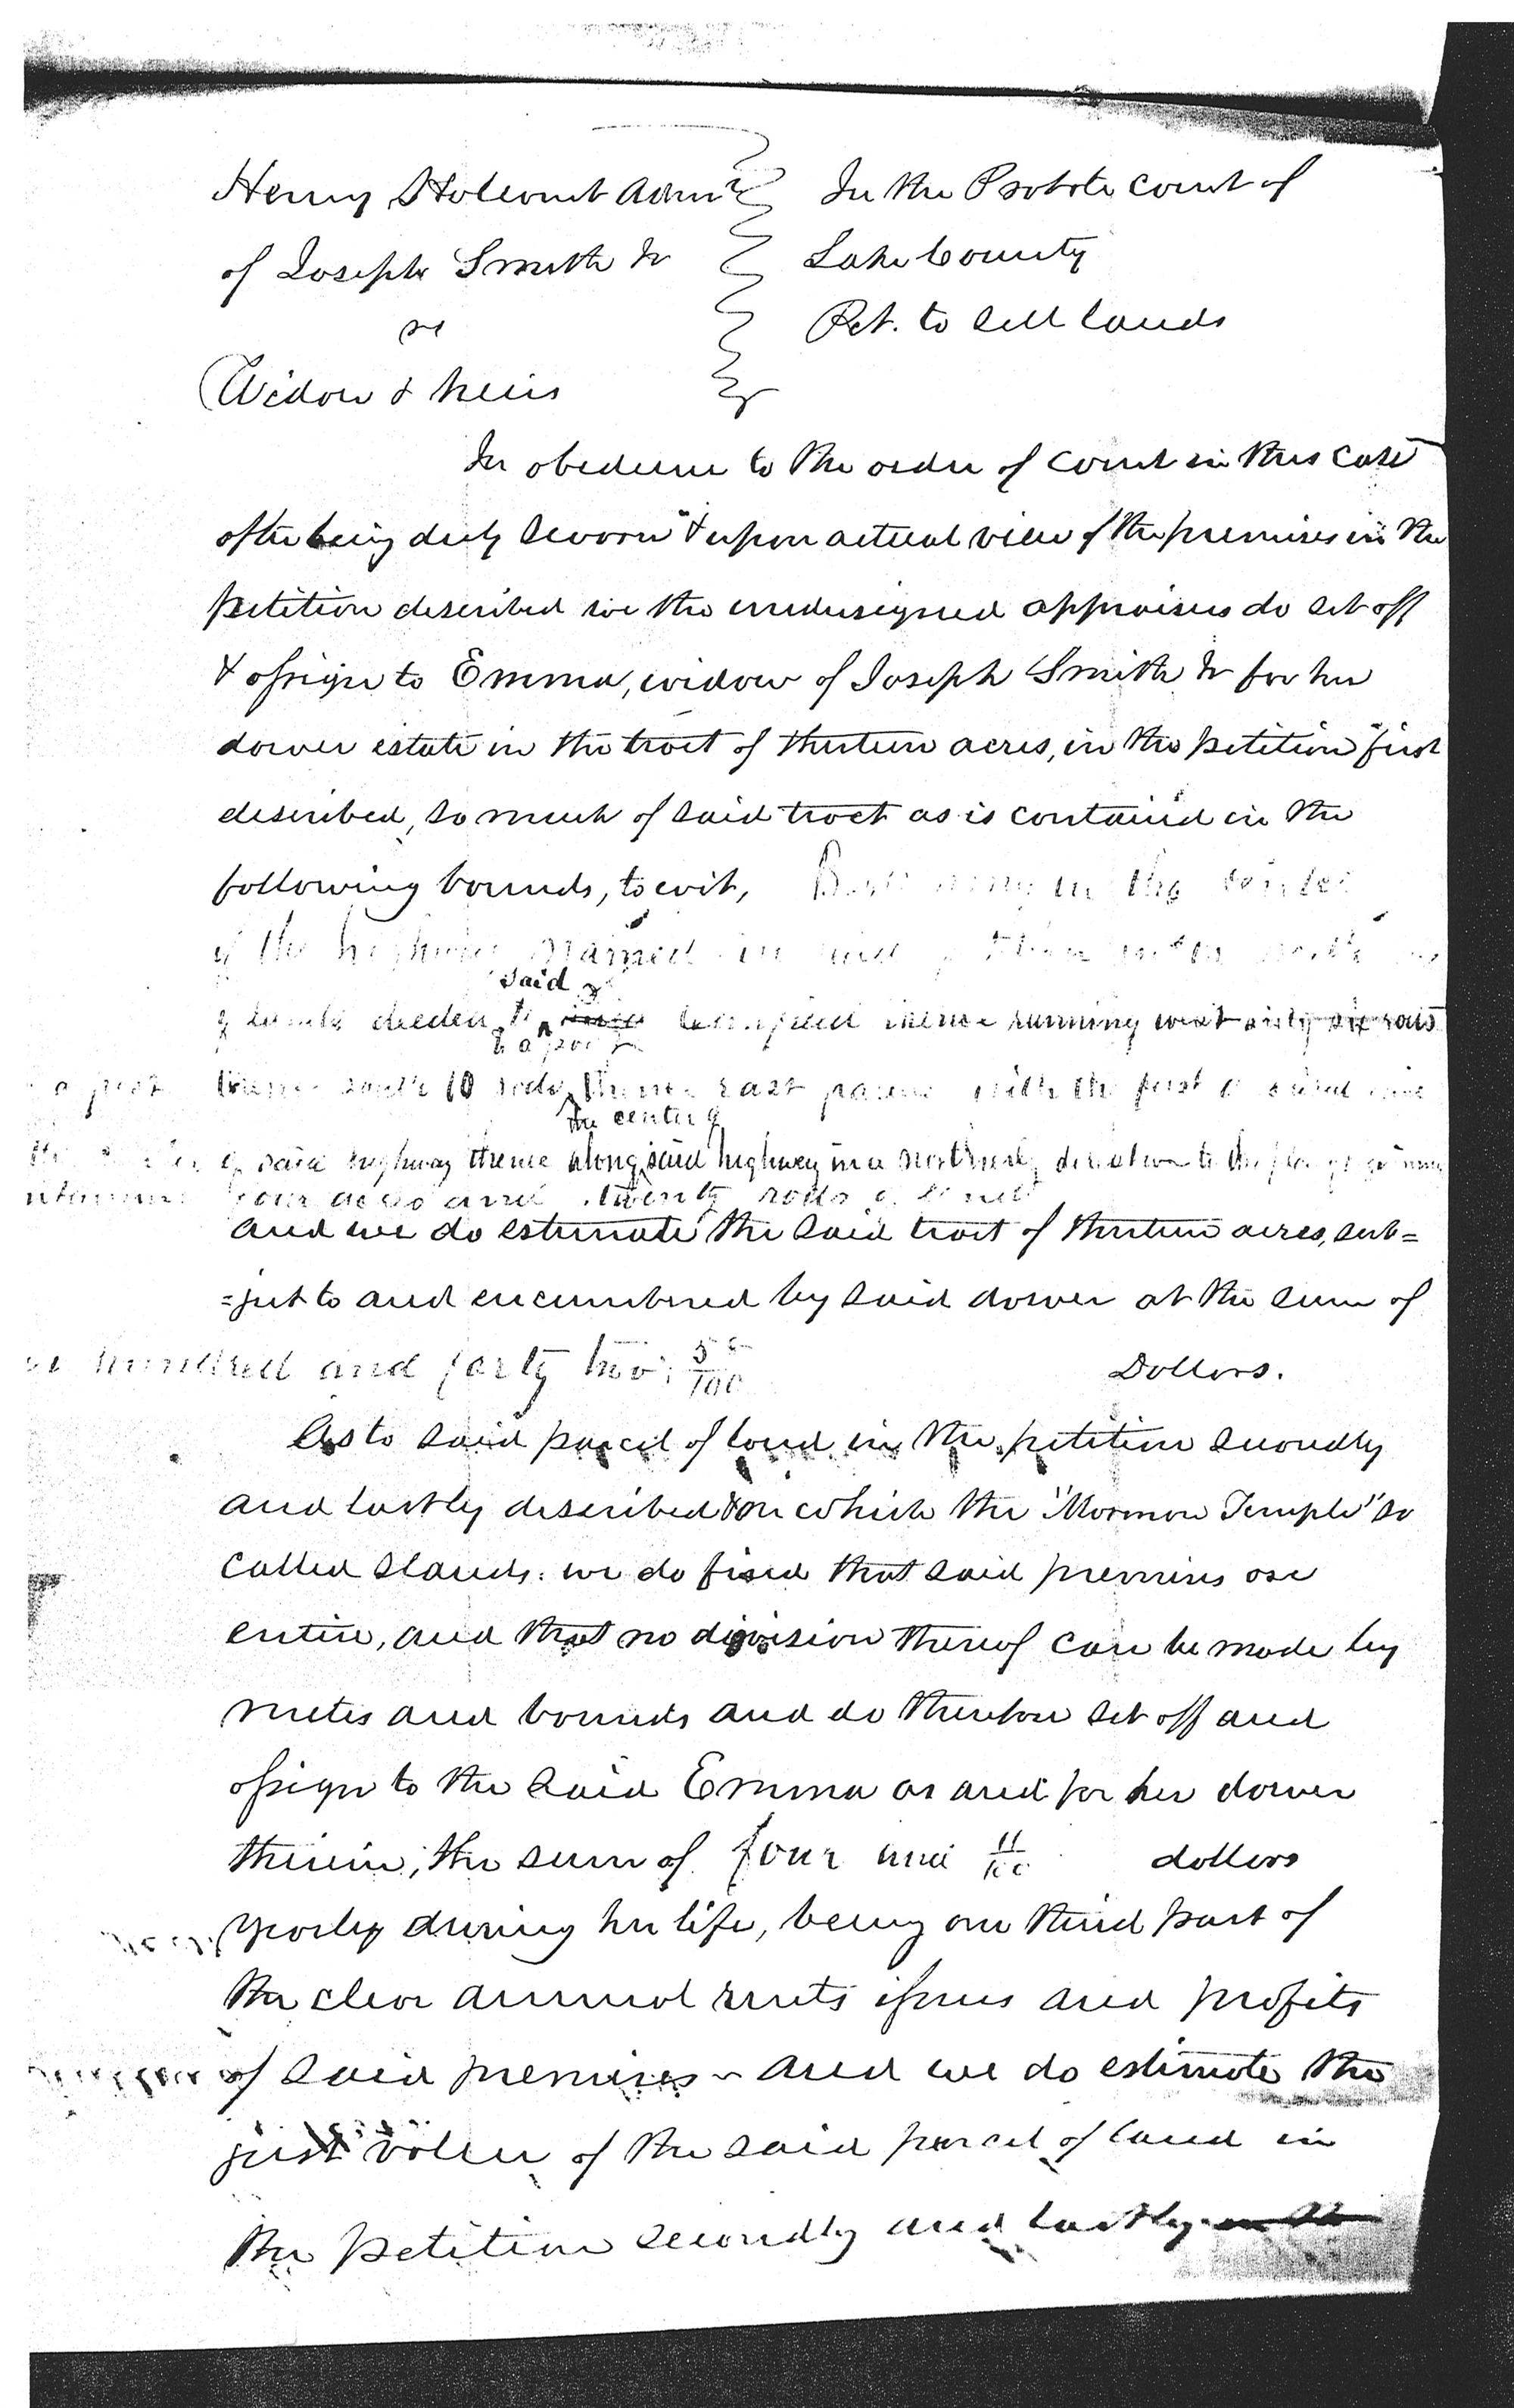 Henry Holcomb Admr In the Probate Court of
of Joseph Smith Jr Lake County
vs Pet. to sell lands
Widow & heirs
In obedience to the order of court in this case
after being duly sworn & upon actual view of the premises in the
petition described we the undersigned appraisers do set off
& assign to Emma, widow of Joseph Smith Jr for her
dower estate in the tract of thirteen acres, in the petition first
described, so much of said tract as is contained in the
following bounds, to wit, in the center
of the highway named in
said
running west
to a post
thence south 10 rods thence east with the first
the center of
of said highway thence along said highway in a northerly direction to the
four acres and twenty rods of land
and we do estimate the said tract of thirteen acres, sub=
=ject to and encumbered by said dower at the sum of
hundred and forty two Dollars.
As to said parcel of land in the petition secondly
and lastly described & on which the "Mormon Temple" so
called stands: we do find that said premises are
entire, and that no division thereof can be made by
metes and bounds and do therefore set off and
assign to the said Emma as and for her dower
therein, the sum of four and 11/100 dollars
yearly during her life, being one third part of
the clear annual rents issues and profits
of said premises - and we do estimate the
just value of the said parcel of land in
the petition secondly and lastly